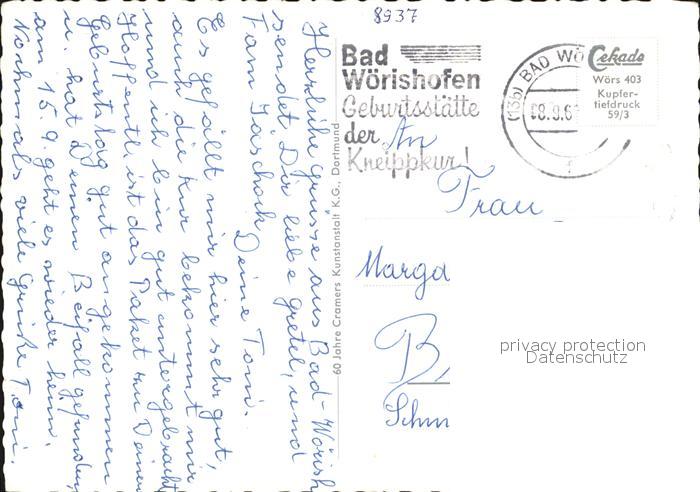 8937
Herzliche Grüsse aus Bad-Wörish
sendet Dir liebe Gretel, und
Fam. Jaschok Deine Toni.
Es gefällt mir hier sehr gut,
auch die Kur bekommt mir
und ich bin gut untergebracht
Hoffentl. ist das Paket zu Deinem
Geburtstag gut angekommen
u. hat Deinen Beifall gefunden,
am 15.9. geht es wieder heim.
Nochmals viele Grüße Toni.
60 Jahre Cramers Kunstanstalt K.G., Dortmund
Bad
Wörishofen
Geburtsstätte
der
Kneippkur!
(13b) BAD WÖ
8.9.6
Cekade
Wörs 403
Kupfer-
tiefdruck
59/3
An
Frau
Marga
B
Schm
privacy protection
Datenschutz